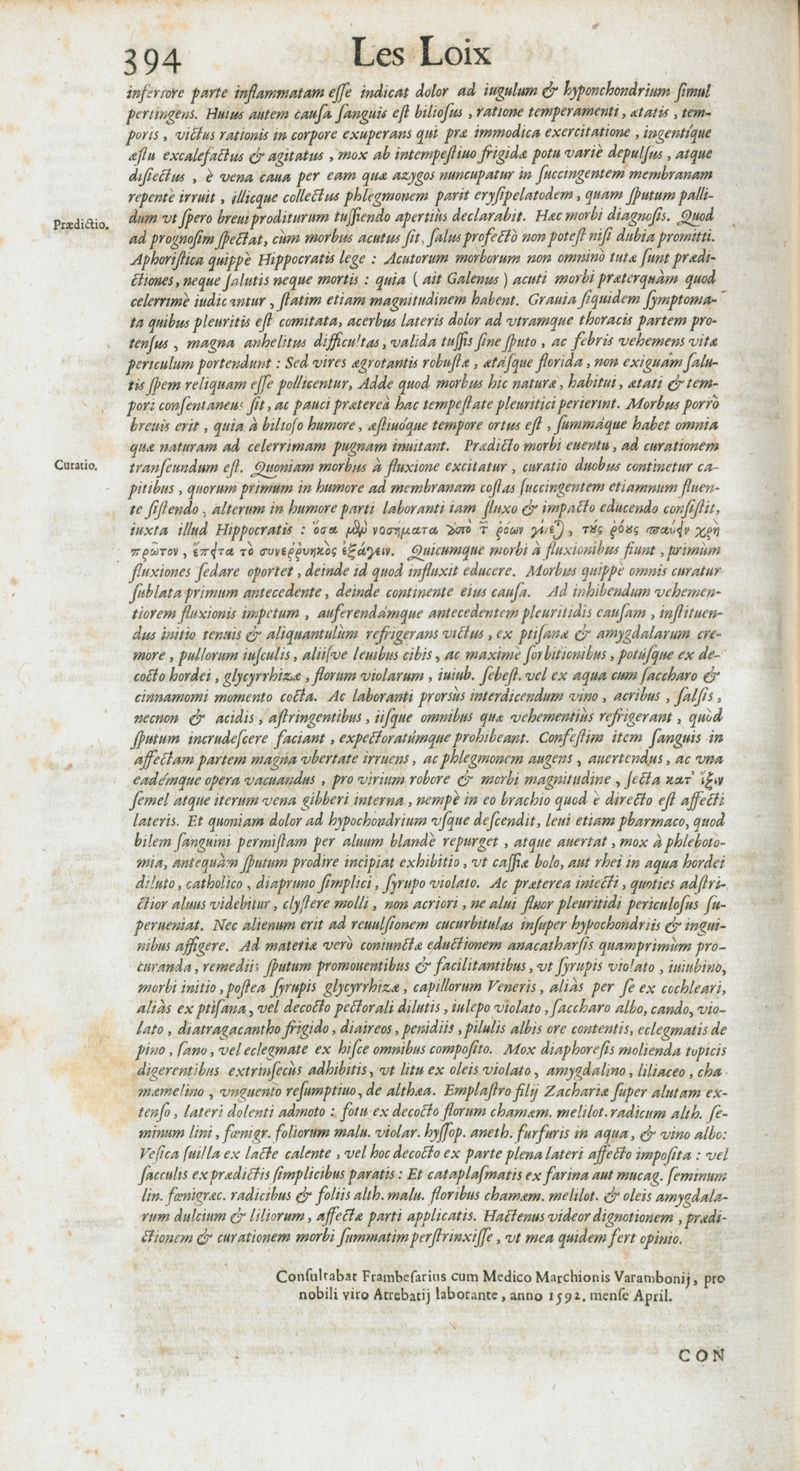 394 Les Loix
inferiore parte inflammatam eſſe indicat dolor ad iugulum & hyponchondrium ſimul
pertingens. Huius autem cauſa ſanguis eſt bilioſus , ratione temperamenti , ætatis , tem-
poris , victus rationis in corpore exuperans qui præ immodica exercitatione , ingentique
æſtu excalefactus & agitatus , mox ab intempeſtiuo frigidæ potu variè depulſus , atque
diſiectus , è vena caua per eam quæ azygos nuncupatur in ſuccingentem membranam
repentè irruit , illicque collectus phlegmonem parit eryſipelatodem , quam ſputum palli-
dum vt ſpero breui proditurum tuſſiendo apertiùs declarabit. Hæc morbi diagnoſis. Quod
Prædictio.
ad prognoſim ſpectat, cùm morbus acutus ſit, ſalus profectò non poteſt niſi dubia promitti.
Aphoriſtica quippè Hippocratis lege : Acutorum morborum non omninò tutæ ſunt prædi-
ctiones, neque ſalutis neque mortis : quia ( ait Galenus ) acuti morbi præterquàm quod
celerrimè iudicantur , ſtatim etiam magnitudinem habent. Grauia ſiquidem ſymptoma-
ta quibus pleuritis eſt comitata, acerbus lateris dolor ad vtramque thoracis partem pro-
tenſus , magna anhelitus difficultas, valida tuſſis ſine ſputo , ac febris vehemens vitæ
periculum portendunt : Sed vires ægrotantis robuſtæ , ætáſque florida , non exiguam ſalu-
tis ſpem reliquam eſſe pollicentur, Adde quod morbus hic naturæ, habitui, ætati & tem-
pori conſentaneus ſit, ac pauci prætereà hac tempeſtate pleuritici perierint. Morbus porrò
breuis erit , quia à bilioſo humore , æſtiuóque tempore ortus eſt , ſummáque habet omnia
quæ naturam ad celerrimam pugnam inuitant. Prædicto morbi euentu , ad curationem
Curatio.
tranſeundum eſt. Quoniam morbus à fluxione excitatur , curatio duobus continetur ca-
pitibus , quorum primum in humore ad membranam coſtas ſuccingentem etiamnum fluen-
te ſiſtendo , alterum in humore parti laboranti iam fluxo & impacto educendo conſiſtit,
iuxta illud Hippocratis : ὅσα μὲν νοσήματα ἀπὸ τ ῥόων γίνε), τοὺς ῥόους παύειν χρὴ
πρῶτον , ἔπειτα τὸ συνεῤῥυηκὸς ἐξάγειν. Quicumque morbi à fluxionibus fiunt , primùm
fluxiones ſedare oportet , deinde id quod influxit educere. Morbus quippè omnis curatur
ſublata primum antecedente , deinde continente eius cauſa. Ad inhibendum vehemen-
tiorem fluxionis impetum , auferendámque antecedentem pleuritidis cauſam , inſtituen-
dus initio tenuis & aliquantulùm refrigerans victus , ex ptiſana & amygdalarum cre-
more , pullorum iuſculis, aliiſve leuibus cibis , ac maximè ſorbitionibus , potúſque ex de-
cocto hordei , glycyrrhizæ , florum violarum , iuiub. ſebeſt. vel ex aqua cum ſaccharo &
cinnamomi momento cocta. Ac laboranti prorsùs interdicendum vino , acribus , ſalſis ,
necnon & acidis , aſtringentibus , iiſque omnibus quæ vehementiùs refrigerant , quòd
ſputum incrudeſcere faciant , expectoratúmque prohibeant. Confeſtim item ſanguis in
affectam partem magna vbertate irruens , ac phlegmonem augens , auertendus , ac vna
eadémque opera vacuandus , pro virium robore & morbi magnitudine , ſecta κατ' ἴξιν
ſemel atque iterum vena gibberi interna , nempè in eo brachio quod è directo eſt affecti
lateris. Et quoniam dolor ad hypochondrium vſque deſcendit, leui etiam pharmaco, quod
bilem ſanguini permiſtam per aluum blandè repurget , atque auertat , mox à phleboto-
mia, antequàm ſputum prodire incipiat exhibitio , vt caſſiæ bolo, aut rhei in aqua hordei
diluto , catholico , diapruno ſimplici , ſyrupo violato. Ac præterea iniecti , quoties adſtri-
ctior aluus videbitur , clyſtere molli , non acriori , ne alui fluor pleuritidi periculoſus ſu-
perueniat. Nec alienum erit ad reuulſionem cucurbitulas inſuper hypochondriis & ingui-
nibus affigere. Ad materiæ verò coniunctæ eductionem anacatharſis quamprimùm pro-
curanda , remediis ſputum promouentibus & facilitantibus , vt ſyrupis violato , iuiubino,
morbi initio , poſtea ſyrupis glycyrrhizæ , capillorum Veneris , aliàs per ſe ex cochleari,
aliàs ex ptiſana, vel decocto pectorali dilutis , iulepo violato , ſaccharo albo, cando, vio-
lato , diatragacantho frigido , diaireos , penidiis , pilulis albis ore contentis, eclegmatis de
pino , ſano , vel eclegmate ex hiſce omnibus compoſito. Mox diaphoreſis molienda topicis
digerentibus extrinſecùs adhibitis, vt litu ex oleis violato , amygdalino , liliaceo , cha-
mæmelino , vnguento reſumptiuo, de althæa. Emplaſtro filij Zachariæ ſuper alutam ex-
tenſo , lateri dolenti admoto : fotu ex decocto florum chamæm. melilot. radicum alth. ſe-
minum lini , fœnigr. foliorum malu. violar. hyſſop. aneth. furfuris in aqua , & vino albo:
Veſica ſuilla ex lacte calente , vel hoc decocto ex parte plena lateri affecto impoſita : vel
ſacculis ex prædictis ſimplicibus paratis : Et cataplaſmatis ex farina aut mucag. ſeminum
lin. fœnigræc. radicibus & foliis alth. malu. floribus chamæm. melilot. & oleis amygdala-
rum dulcium & liliorum , affectæ parti applicatis. Hactenus videor dignotionem , prædi-
ctionem & curationem morbi ſummatim perſtrinxiſſe , vt mea quidem fert opinio.
Conſultabat Frambeſarius cum Medico Marchionis Varambonij, pro
nobili viro Atrebatij laborante , anno 1592. menſe April.
CON